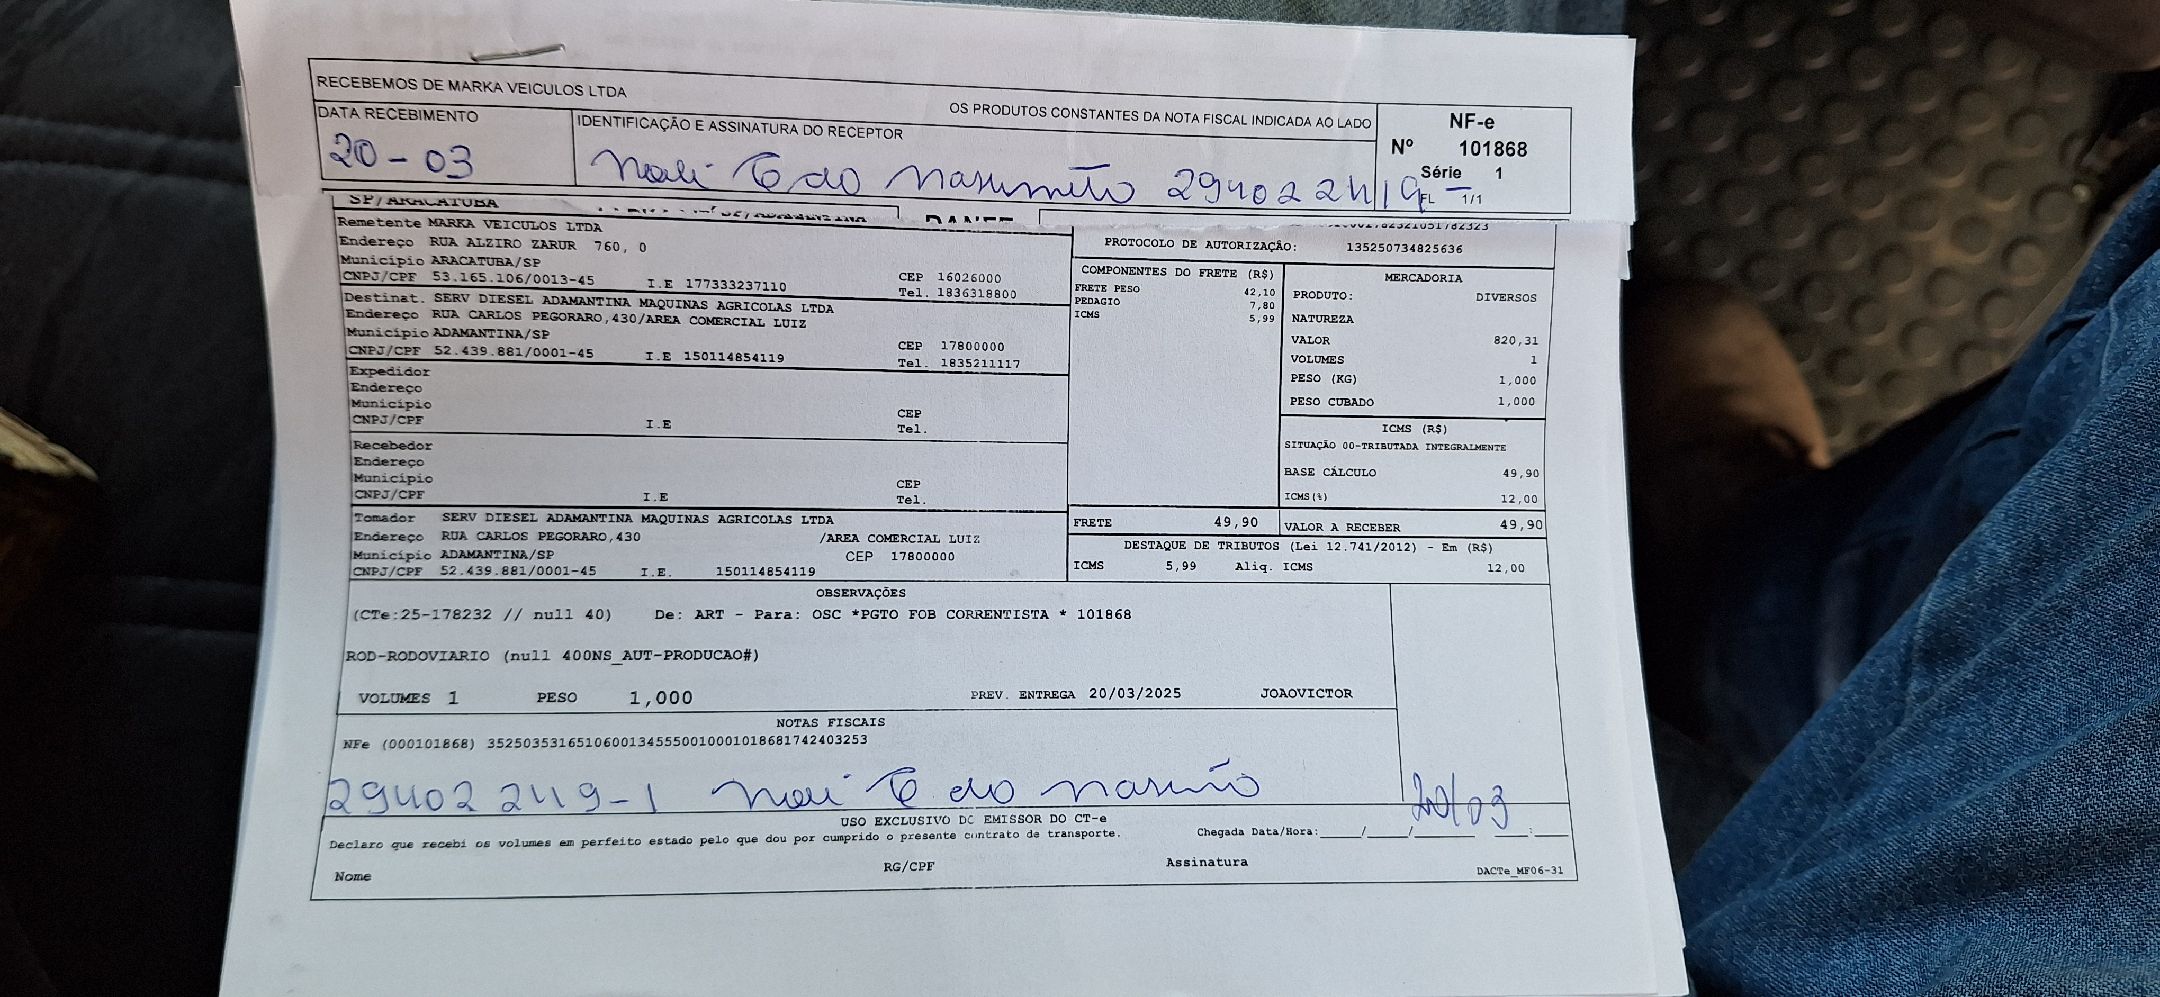 RECEBEMOS DE MARKA VEICULOS LTDA
OS PRODUTOS CONSTANTES DA NOTA FISCAL INDICADA AO LADO
DATA RECEBIMENTO
20-03
IDENTIFICAÇÃO E ASSINATURA DO RECEPTOR
do 294022419
NF-e
Nº 101868
Série 1
FL 1/1
SP/ARACATUBA
DANFE
Remetente MARKA VEICULOS LTDA
Endereço RUA ALZIRO ZARUR 760, 0
Município ARACATUBA/SP
CNPJ/CPF 53.165.106/0013-45 I.E 177333237110
CEP 16026000
Tel. 1836318800
Destinat. SERV DIESEL ADAMANTINA MAQUINAS AGRICOLAS LTDA
Endereço RUA CARLOS PEGORARO,430/AREA COMERCIAL LUIZ
Município ADAMANTINA/SP
CNPJ/CPF 52.439.881/0001-45 I.E 150114854119
CEP 17800000
Tel. 1835211117
Expedidor
Endereço
Município
CNPJ/CPF I.E
CEP
Tel.
Recebedor
Endereço
Município
CNPJ/CPF I.E
CEP
Tel.
Tomador SERV DIESEL ADAMANTINA MAQUINAS AGRICOLAS LTDA
Endereço RUA CARLOS PEGORARO,430 /AREA COMERCIAL LUIZ
Município ADAMANTINA/SP CEP 17800000
CNPJ/CPF 52.439.881/0001-45 I.E. 150114854119
PROTOCOLO DE AUTORIZAÇÃO: 135250734825636
COMPONENTES DO FRETE (R$)
FRETE PESO 42,10
PEDAGIO 7,80
ICMS 5,99
MERCADORIA
PRODUTO: DIVERSOS
NATUREZA
VALOR 820,31
VOLUMES 1
PESO (KG) 1,000
PESO CUBADO 1,000
ICMS (R$)
SITUAÇÃO 00-TRIBUTADA INTEGRALMENTE
BASE CÁLCULO 49,90
ICMS(%) 12,00
FRETE 49,90
VALOR A RECEBER 49,90
DESTAQUE DE TRIBUTOS (Lei 12.741/2012) - Em (R$)
ICMS 5,99 Aliq. ICMS 12,00
OBSERVAÇÕES
(CTe:25-178232 // null 40) De: ART - Para: OSC *PGTO FOB CORRENTISTA * 101868
ROD-RODOVIARIO (null 400NS_AUT-PRODUCAO#)
VOLUMES 1 PESO 1,000 PREV. ENTREGA 20/03/2025 JOAOVICTOR
NOTAS FISCAIS
NFe (000101868) 35250353165106001345550010001018681742403253
29402249-1 do
20/03
USO EXCLUSIVO DO EMISSOR DO CT-e
Declaro que recebi os volumes em perfeito estado pelo que dou por cumprido o presente contrato de transporte.
Chegada Data/Hora:_____/_____/_______ ____:____
Nome RG/CPF Assinatura
DACTe_MF06-31